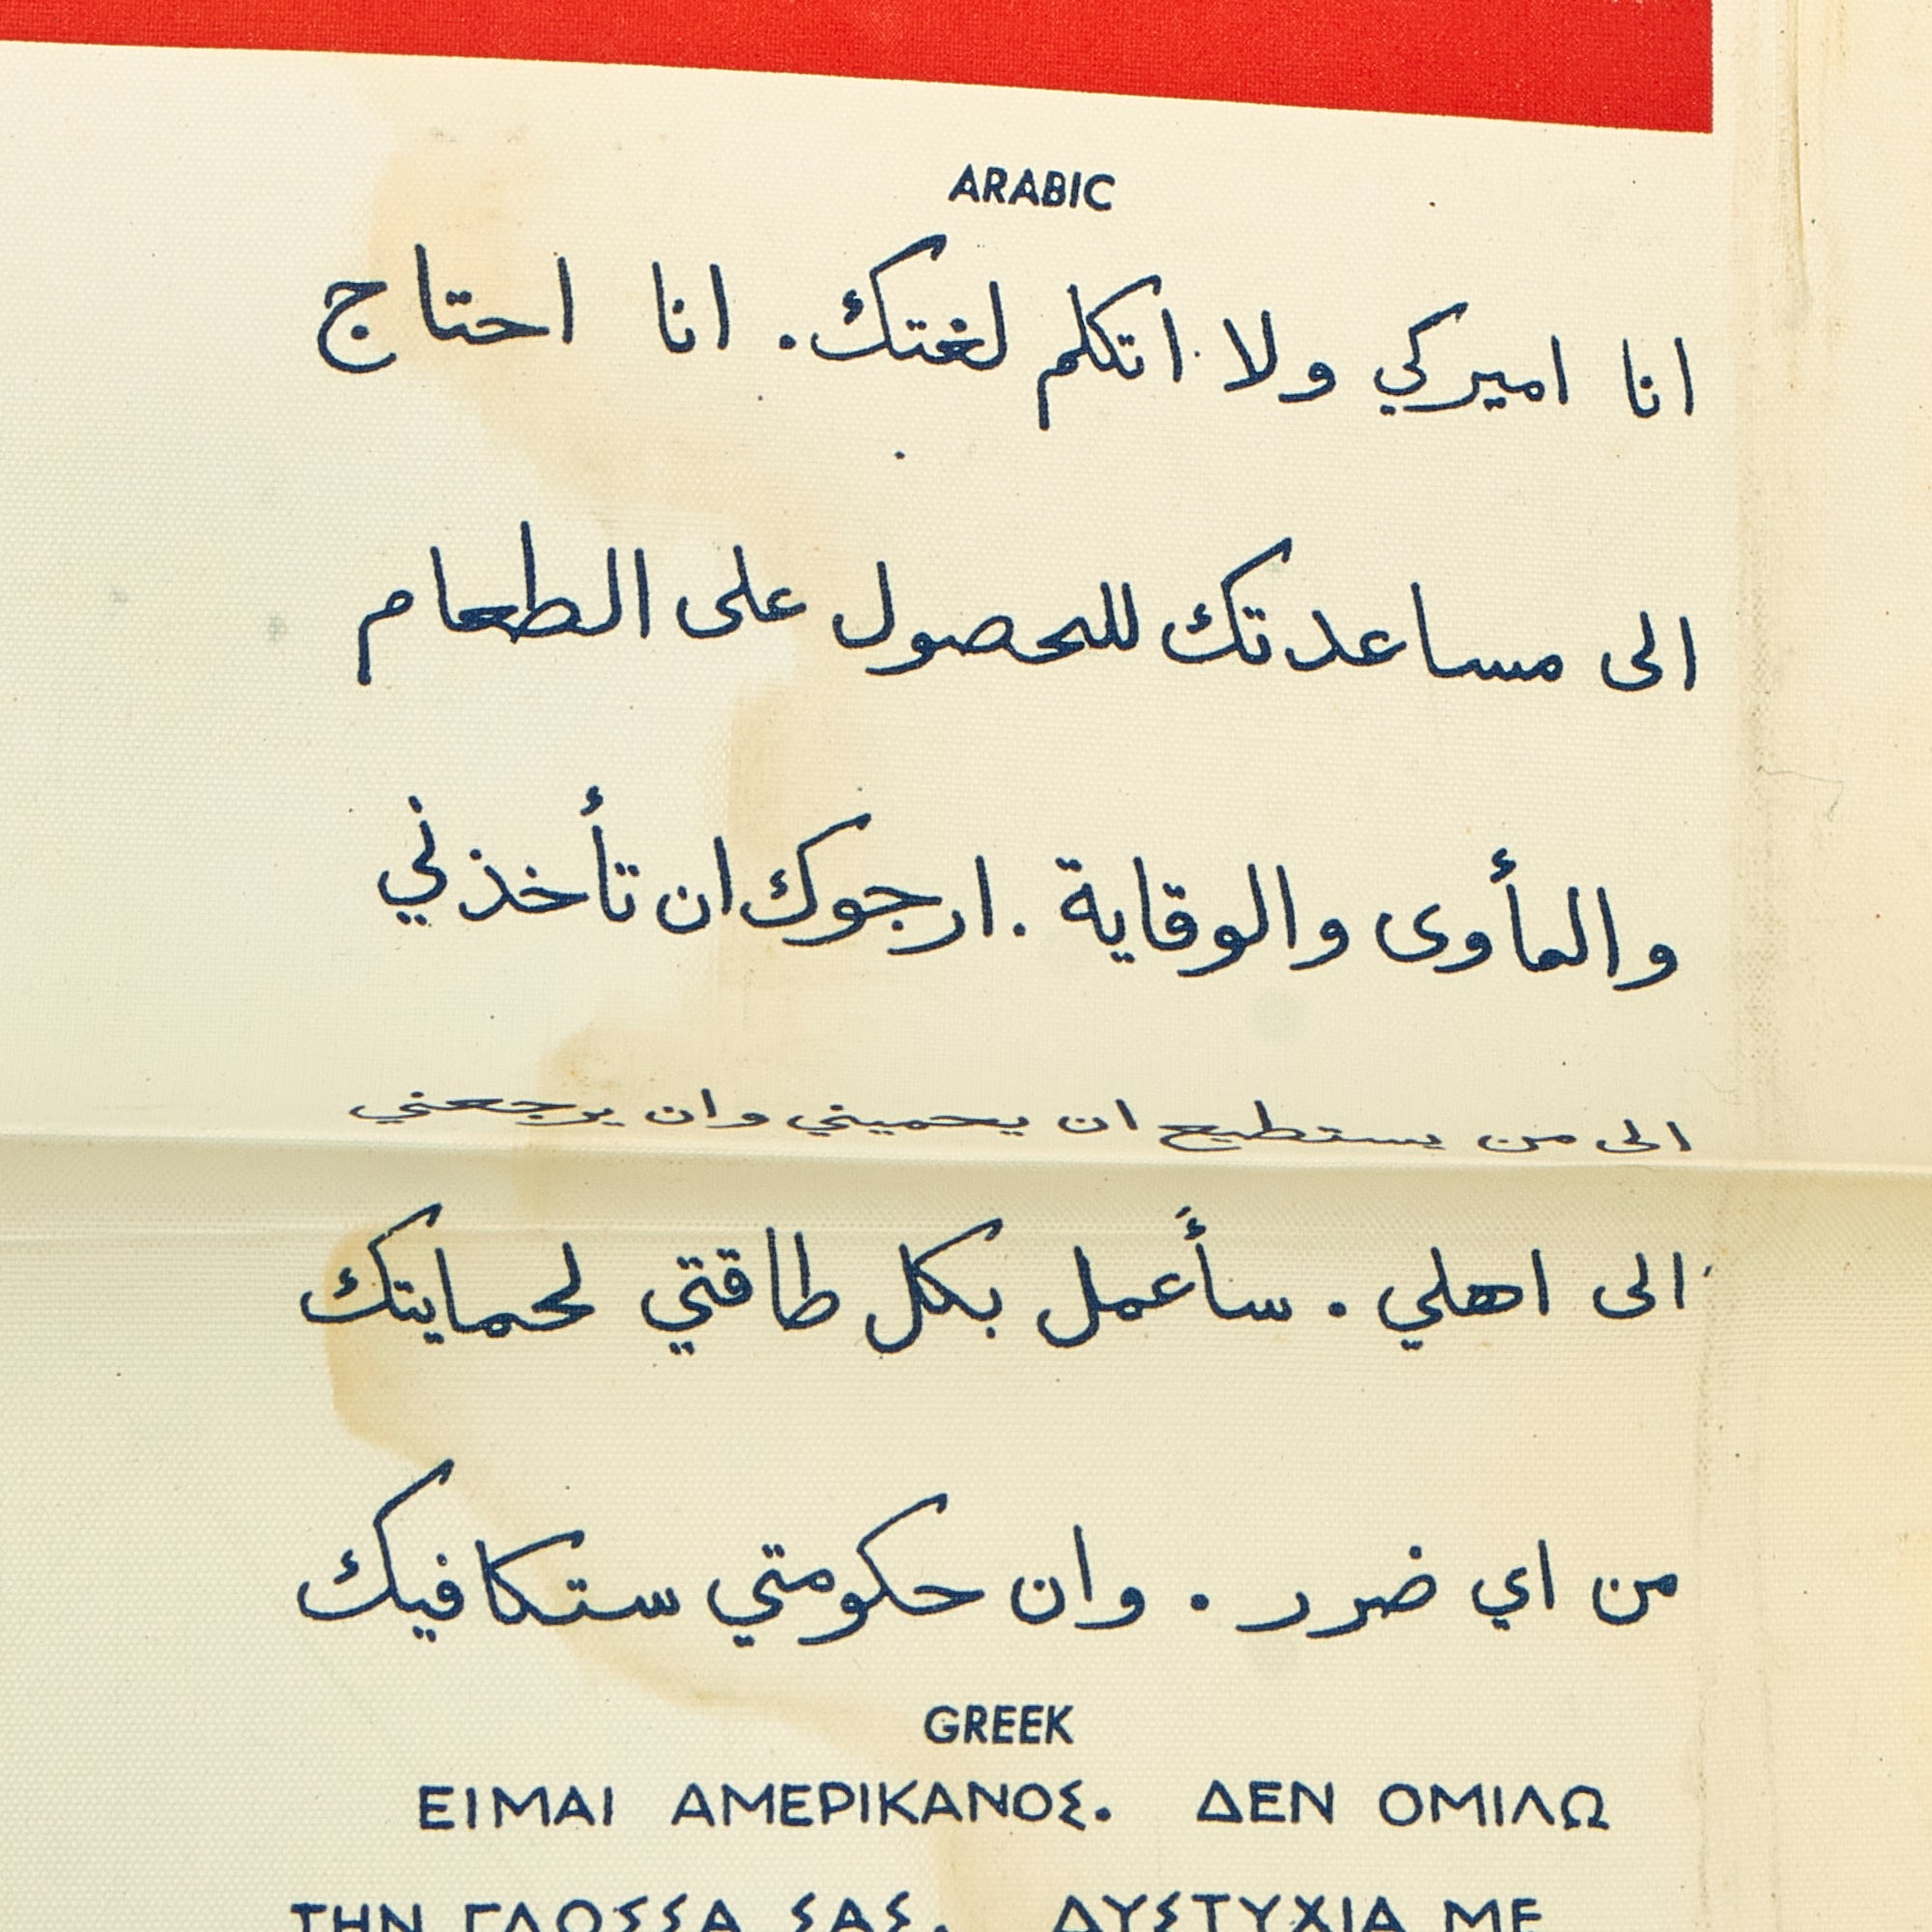 ARABIC
انا اميركي ولا اتكلم لغتك. انا احتاج
الى مساعدتك للحصول على الطعام
والمأوى والوقاية . ارجوك ان تأخذني
الى من يستطيع ان يحميني وان يرجعني
الى اهلي . سأعمل بكل طاقتي لحمايتك
من اي ضرر . وان حكومتي ستكافيك
GREEK
ΕΙΜΑΙ ΑΜΕΡΙΚΑΝΟΣ. ΔΕΝ ΟΜΙΛΩ
ΤΗΝ ΓΛΩΣΣΑ ΣΑΣ. ΔΥΣΤΥΧΙΑ ΜΕ